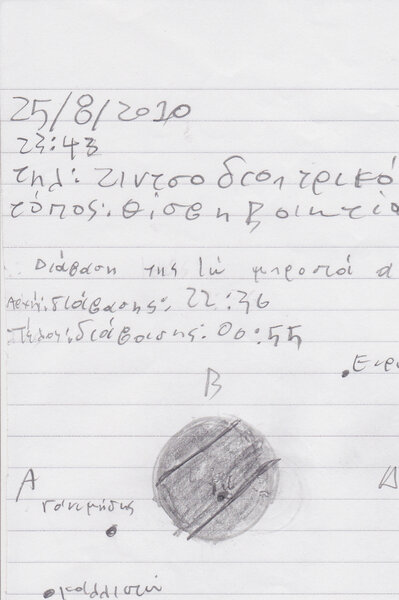 25/8/2010
23:43
τηλ: τιντσο διοπτρικό
τόπος: θίσβη Βοιητία
Διάβαση της Ιώ μπροστά α
Αρχή: διάβασης: 22:36
Τέλος: διάβασης: 00:55
Ευρ
Β
Α
Δ
Γανιμήδης
καλλιστώ